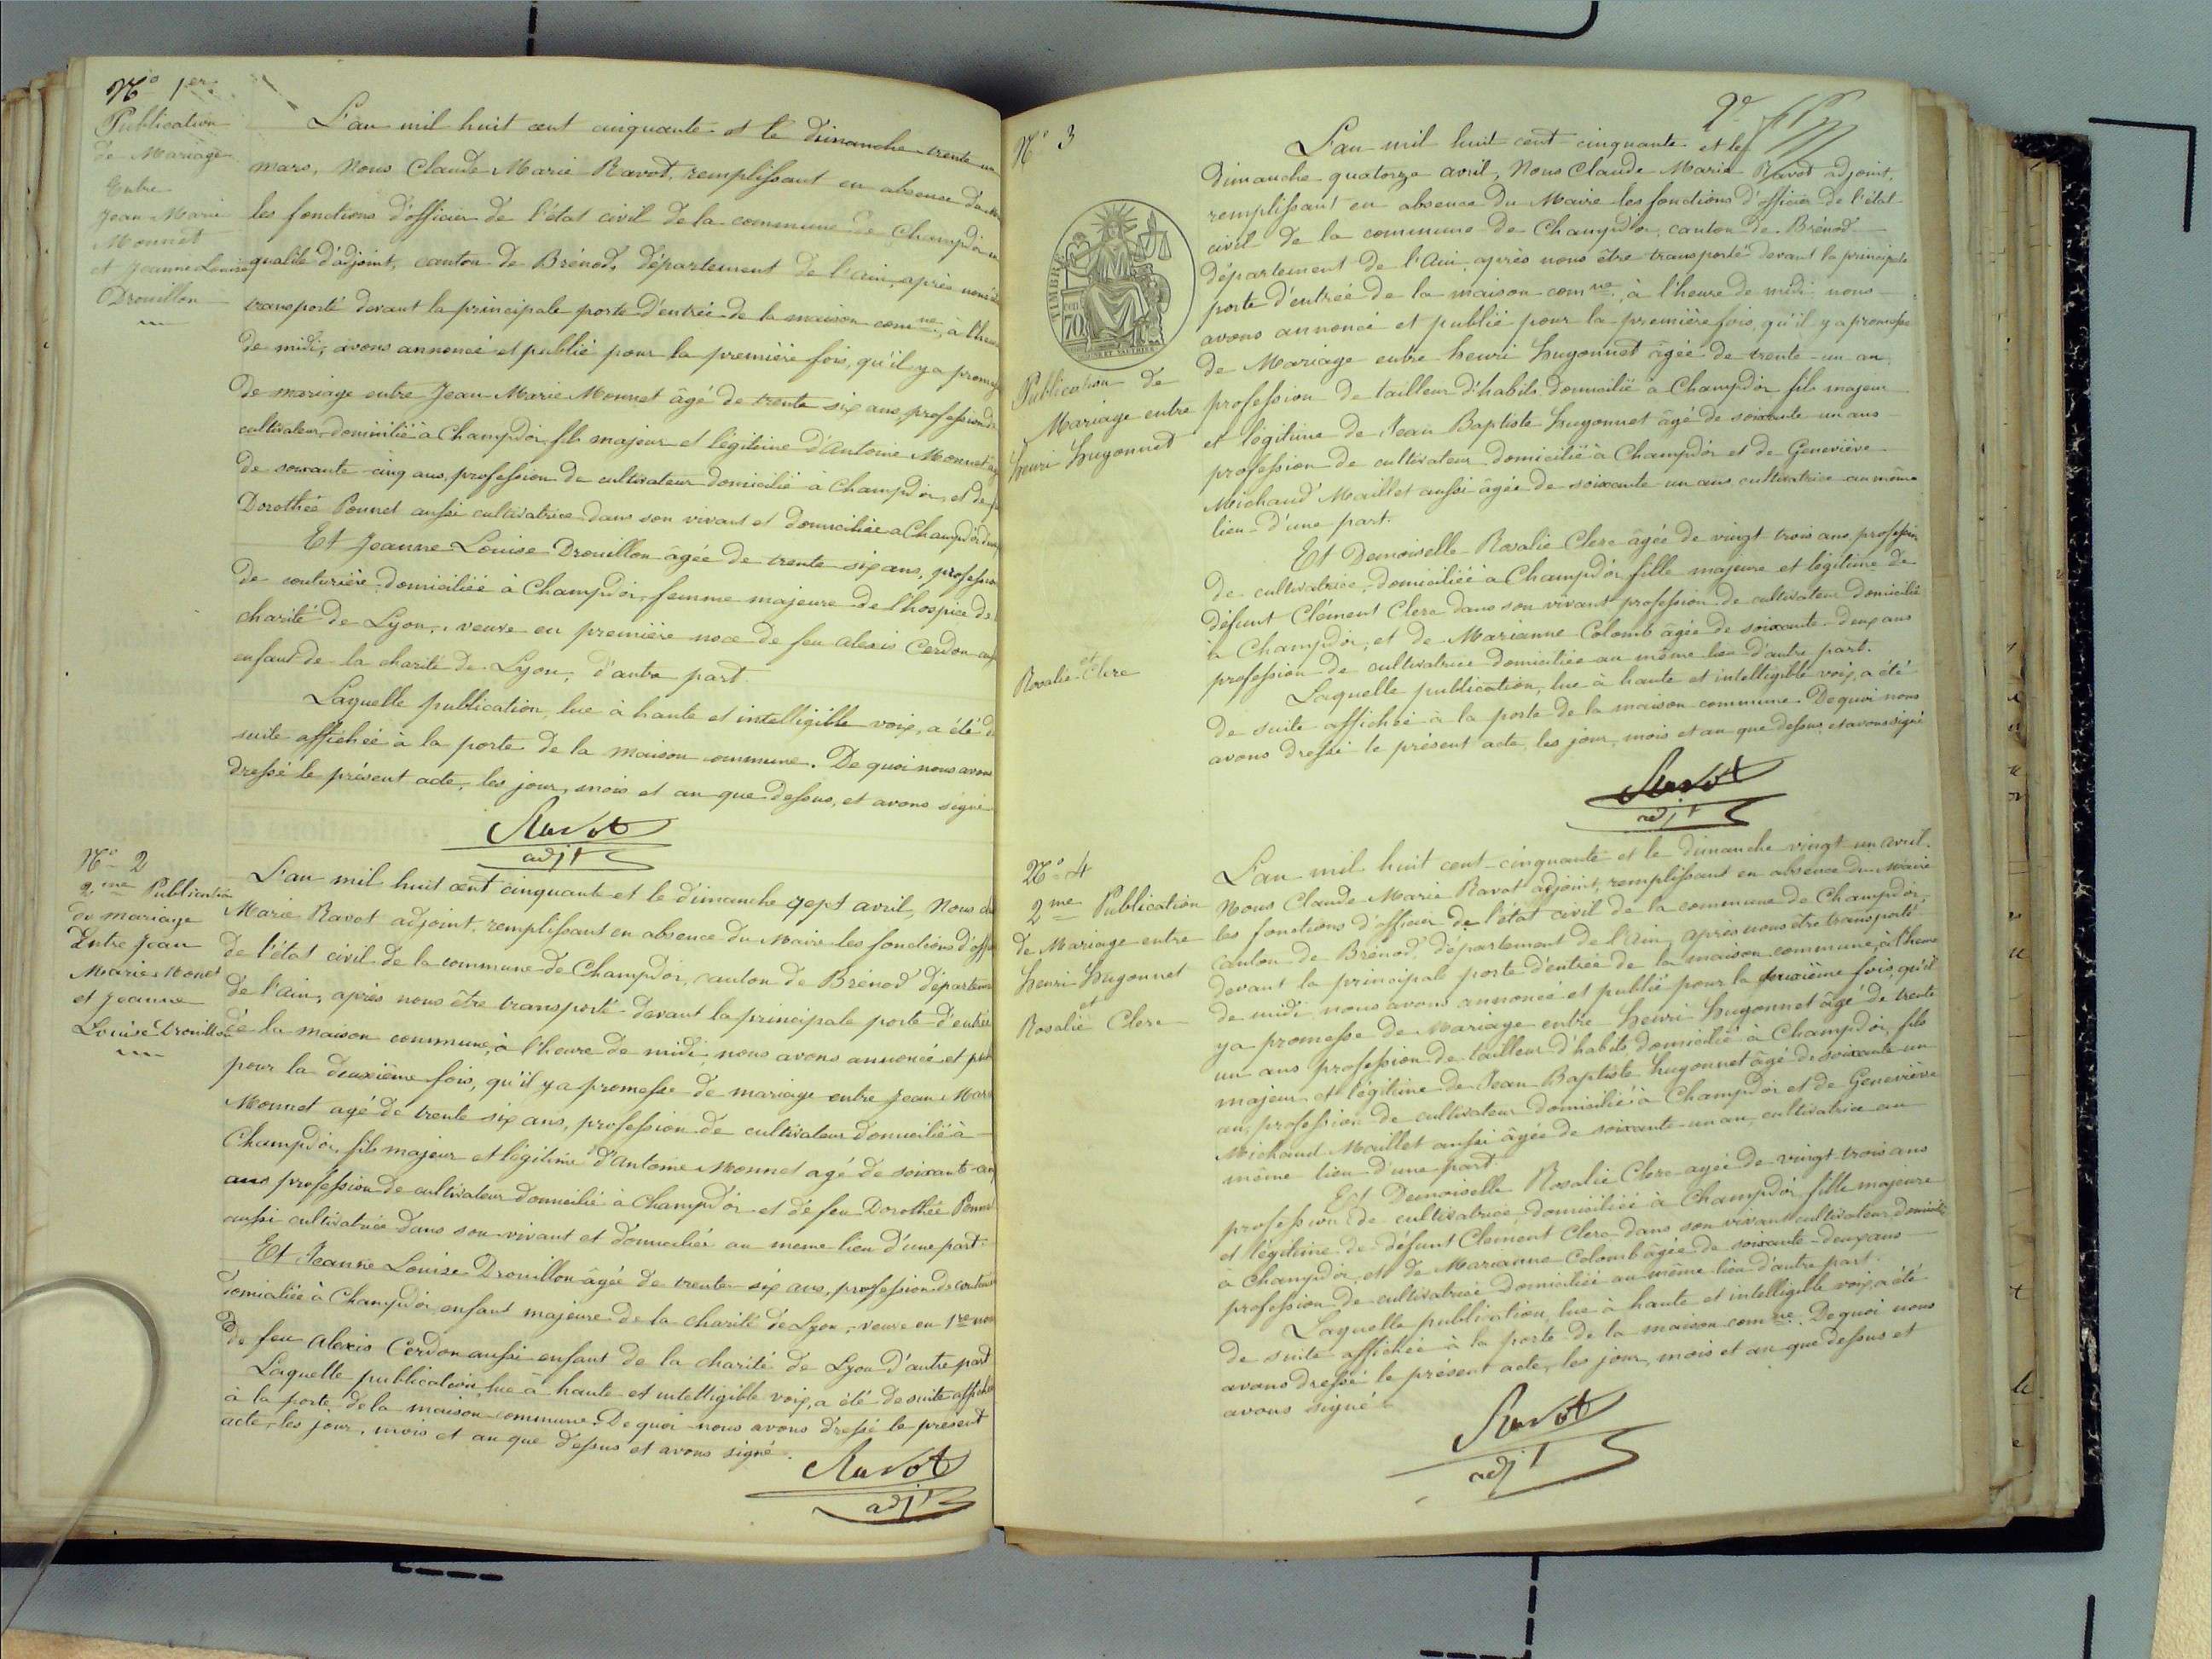 N° 1er
Publication
de Mariage
Entre
Jean Marie
Monnet
et Jeanne Louise
Drouillon
L'an mil huit cent cinquante et le dimanche trente un
mars, Nous Claude Marie Ravot, remplissant en absence du
les fonctions d'officier de l'état civil de la commune de Champdor en
qualité d'adjoint, canton de Brénod, département de l'ain, après nous
transporté devant la principale porte d'entrée de la maison comne, à l'heure
de midi, avons annoncé et publié pour la première fois, qu'il y a promesse
de mariage entre Jean Marie Monnet âgé de trente six ans, profession de
cultivateur, domicilié à Champdor, fils majeur et légitime d'Antoine Monnet
de soixante cinq ans, profession de cultivateur domicilié à Champdor, et de
Dorothée Ponnet aussi cultivatrice dans son vivant et domiciliée à Champdor
Et Jeanne Louise Drouillon âgée de trente six ans, profession
de couturière domiciliée à Champdor, femme majeure de l'hospice de
charité de Lyon, veuve en première noce de feu alexis Cerdon
enfant de la charité de Lyon, d'autre part.
Laquelle publication, lue à haute et intelligible voix, a été de
suite affichée à la porte de la maison commune. De quoi nous avons
dressé le présent acte, les jour, mois et an que dessus, et avons signé
Ravot
adjt
N° 2
2me Publication
de mariage
Entre Jean
Marie Monet
et Jeanne
Louise trouillon
L'an mil huit cent cinquante et le dimanche sept avril, Nous
Marie Ravot adjoint, remplissant en absence du Maire les fonctions d'officier
de l'état civil de la commune de Champdor, canton de Brénod département
de l'ain, après nous être transporté devant la principale porte d'entrée
de la maison commune, à l'heure de midi nous avons annoncé et publié
pour la deuxième fois, qu'il y a promesse de mariage entre Jean Marie
Monnet agé de trente six ans, profession de cultivateur domicilié à
Champdor, fils majeur et légitime d'antoine Monnet agé de soixante cinq
ans profession de cultivateur domicilié à Champdor et de feu Dorothée Ponnet
aussi cultivatrice dans son vivant et domiciliée au meme lieu d'une part.
Et Jeanne Louise Drouillon âgée de trente six ans, profession de couturière
domiciliée à Champdor, enfant majeure de la charité de Lyon, veuve en 1re noce
de feu alexis Cerdon aussi enfant de la charité de Lyon d'autre part
Laquelle publication, lue à haute et intelligible voix, a été de suite affichée
à la porte de la maison commune. De quoi nous avons dressé le présent
acte, les jour, mois et an que dessus et avons signé.
Ravot
adjt
N° 3
TIMBRE
70
Publication de
Mariage entre
Henri Hugonnet
et
Rosalie Clerc
L'an mil huit cent cinquante et le
dimanche quatorze avril, Nous Claude Marie Ravot adjoint,
remplissant en absence du Maire les fonctions d'officier de l'état
civil de la commune de Champdor, canton de Brénod
département de l'Ain, après nous être transporté devant la principale
porte d'entrée de la maison comne, à l'heure de midi nous
avons annoncé et publié pour la première fois, qu'il y a promesse
de Mariage entre henri Hugonnet âgée de trente-un an,
profession de tailleur d'habits domicilié à Champdor fils majeur
et légitime de Jean Baptiste Hugonnet âgé de soixante un ans
profession de cultivateur domicilié à Champdor et de Geneviève
Michaud Maillet aussi âgée de soixante un ans cultivatrice au même
lieu d'une part.
Et Demoiselle Rosalie Clerc âgée de vingt-trois ans profession
de cultivatrice, domiciliée à Champdor fille majeure et légitime de
défunt Clément Clerc dans son vivant profession de cultivateur domicilié
à Champdor, et de Marianne Colomb âgée de soixante-deux ans
profession de cultivatrice domiciliée au même lieu d'autre part.
Laquelle publication, lue à haute et intelligible voix, a été
de suite affichée à la porte de la maison commune. De quoi nous
avons dressé le présent acte, les jour, mois et an que dessus, et avons signé
Ravot
adjt
N° 4
2me Publication
de Mariage entre
Henri Hugonnet
et
Rosalie Clerc
L'an mil huit cent cinquante et le dimanche vingt-un avril.
Nous Claude Marie Ravot adjoint, remplissant en absence du Maire
les fonctions d'officier de l'état civil de la commune de Champdor,
canton de Brénod, département de l'Ain, après nous être transporté
devant la principale porte d'entrée de la maison commune, à l'heure
de midi nous avons annoncé et publié pour la deuxième fois, qu'il
y a promesse de Mariage entre Henri Hugonnet âgé de trente
un ans profession de tailleur d'habits domicilié à Champdor, fils
majeur et légitime de Jean Baptiste Hugonnet âgé de soixante un
an, profession de cultivateur domicilié à Champdor et de Geneviève
Michaud Maillet aussi âgée de soixante-un an, cultivatrice au
même lieu d'une part.
Et Demoiselle Rosalie Clerc agée de vingt-trois ans
profession de cultivatrice, domiciliée à Champdor fille majeure
et légitime de défunt Clement Clerc dans son vivant cultivateur domicilié
à Champdor, et de Marianne Colomb âgée de soixante-deux ans
profession de cultivatrice domiciliée au même lieu d'autre part.
Laquelle publication, lue à haute et intelligible voix, a été
de suite affichée à la porte de la maison comne. De quoi nous
avons dressé le présent acte, les jour, mois et an que dessus et
avons signé
Ravot
adjt